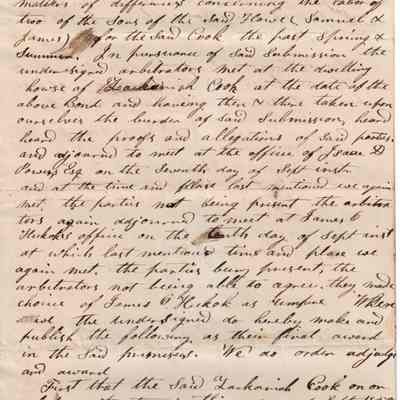 matters of difference concerning the labor of
two of the Sons of the Said Hower Samuel &
James) for the Said Cook the past Spring &
Summer. In pursuance of Said Submission the
undersigned arbitrators met at the dwelling
house of Zachariah Cook at the date of the
above bond and having then & there taken upon
ourselves the burden of said Submission, heard
heard the proofs and allegations of Said parties
and adjournd to meet at the office of Isaac D
Powers Esq on the Seventh day of Sept instn
and at the time and place last mentioned we again
met, the parties not being present the arbitra
tors again adjourned to meet at James C
Hickok's office on the tenth day of Sept inst
at which last mentioned time and place we
again met, the parties being present, the
arbitrators not being able to agree, they made
choice of James C Hickok as Umpire Where
we the undersigned do hereby make and
publish the following as their final award
in the Said premises. We do order adjudge
and award
First that the Said Zachariah Cook on or